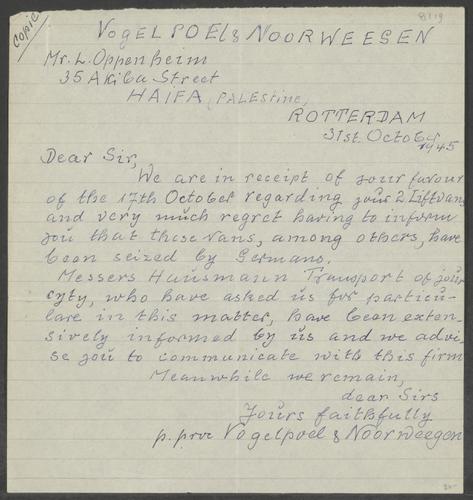 copie
8119
VOGELPOEL & NOORWEEGEN
Mr. L. Oppenheim
35 Akiba Street
HAIFA, PALESTINE,
ROTTERDAM
31st. October
1945
Dear Sir,
We are in receipt of your favour
of the 17th October regarding your 2 Liftvans
and very much regret having to inform
you that these vans, among others, have
been seized by Germans.
Messers Hausmann Transport of your
cyty, who have asked us for particu-
lare in this matter, have been exten-
sively informed by us and we advi-
se you to communicate with this firm
Meanwhile we remain,
dear Sirs
Yours faithfully
p. proc Vogelpoel & Noorweegen